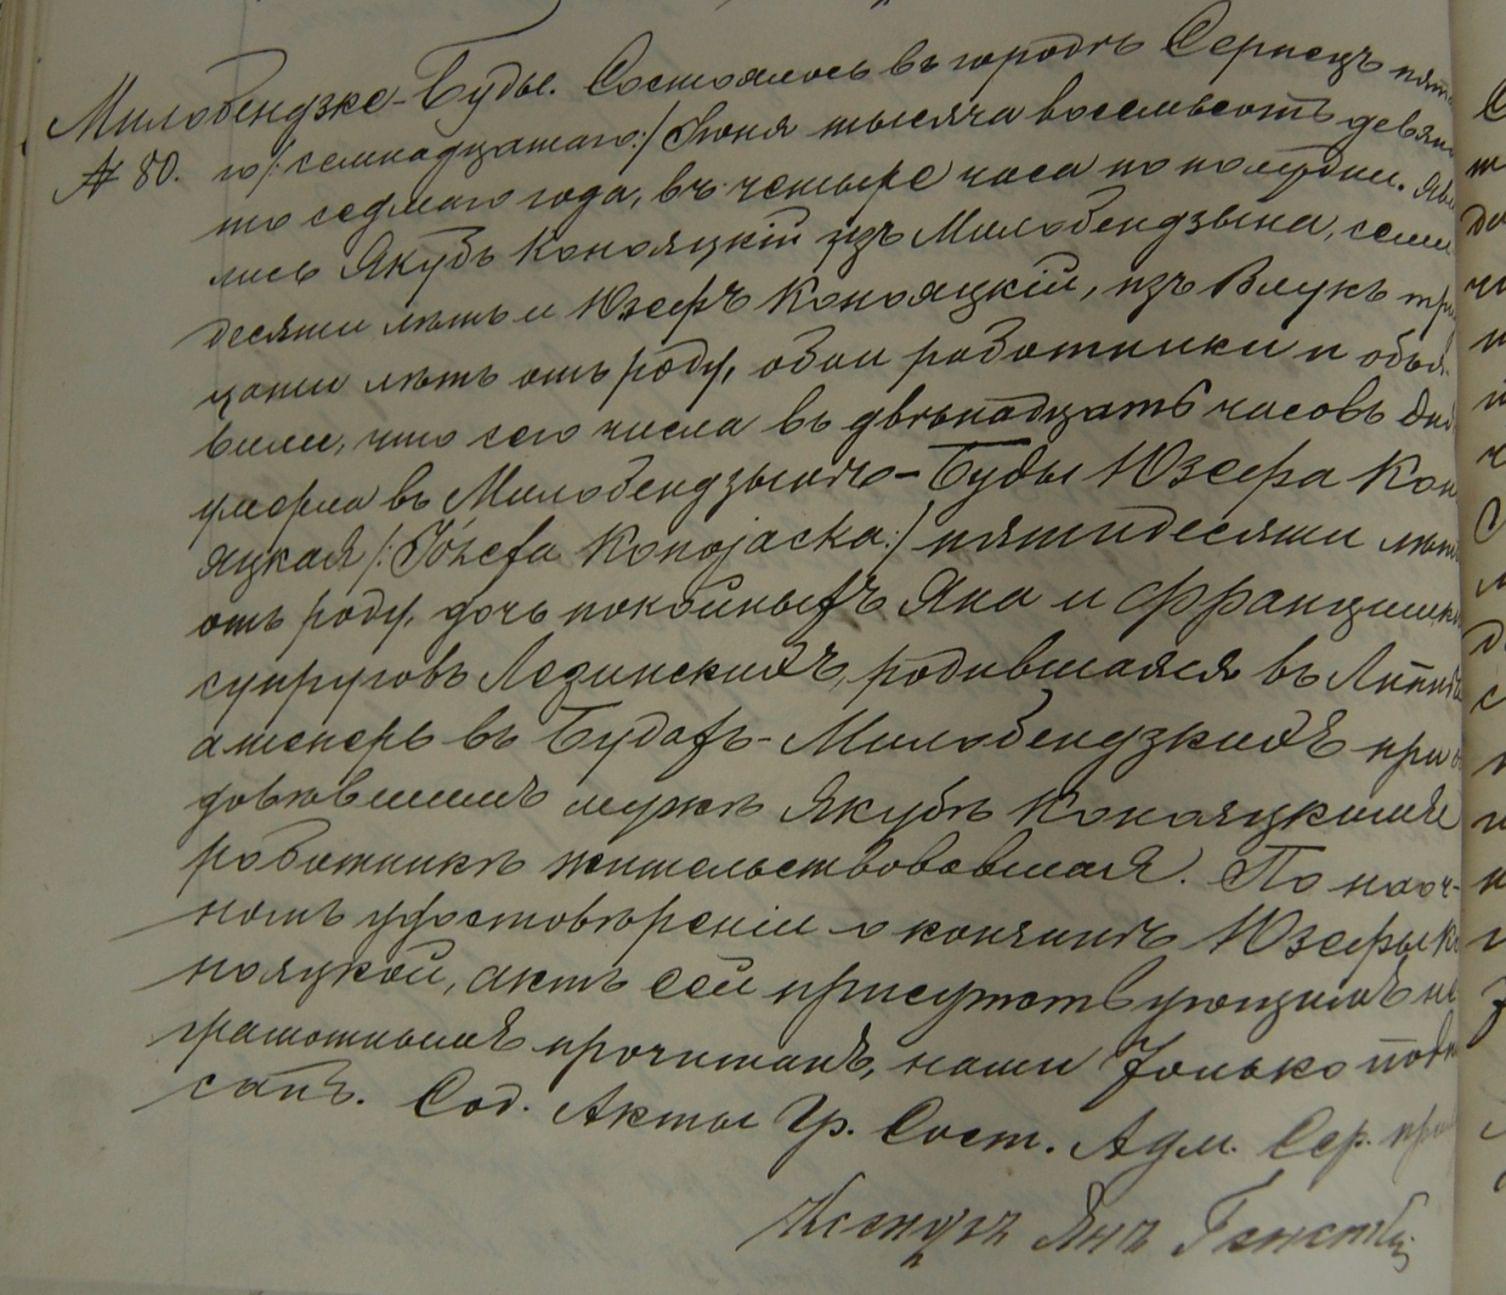 Милобендзке-Буды. Состоялось въ городѣ Серпецъ пято
№ 80. го /:семнадцатаго:/ Іюня тысяча восемьсотъ девяно
то седмаго года, въ четыре часа по полудни. Яви
лись Якубъ Конояцкій изъ Милобендзына, семи
десяти лѣтъ и Юзефъ Конояцкій, изъ Влукъ трид
цати лѣтъ отъ роду, обои работники и объя
вили, что сего числа въ двѣнадцать часовъ дня
умерла въ Милобендзынѣ-Буды Юзефа Кон
яцкая /:Józefa Konojacka:/ пятидесяти лѣтъ
отъ роду, дочь покойныхъ Яна и Францишки
супруговъ Лезинскихъ, родившаяся въ
а теперь въ Будахъ-Милобендзкихъ при о
довѣвшимъ мужѣ Якубѣ Конояцкимъ
работникѣ жительствовавшая. По наоч-
номъ удостовѣреніи о кончинѣ Юзефы Ко
нояцкой, актъ сей присутствующимъ не
грамотнымъ прочитанъ, нами только подпи
санъ. Сод. Акты Гр. Сост. Адм. Сер. при
Ксендзъ Янъ